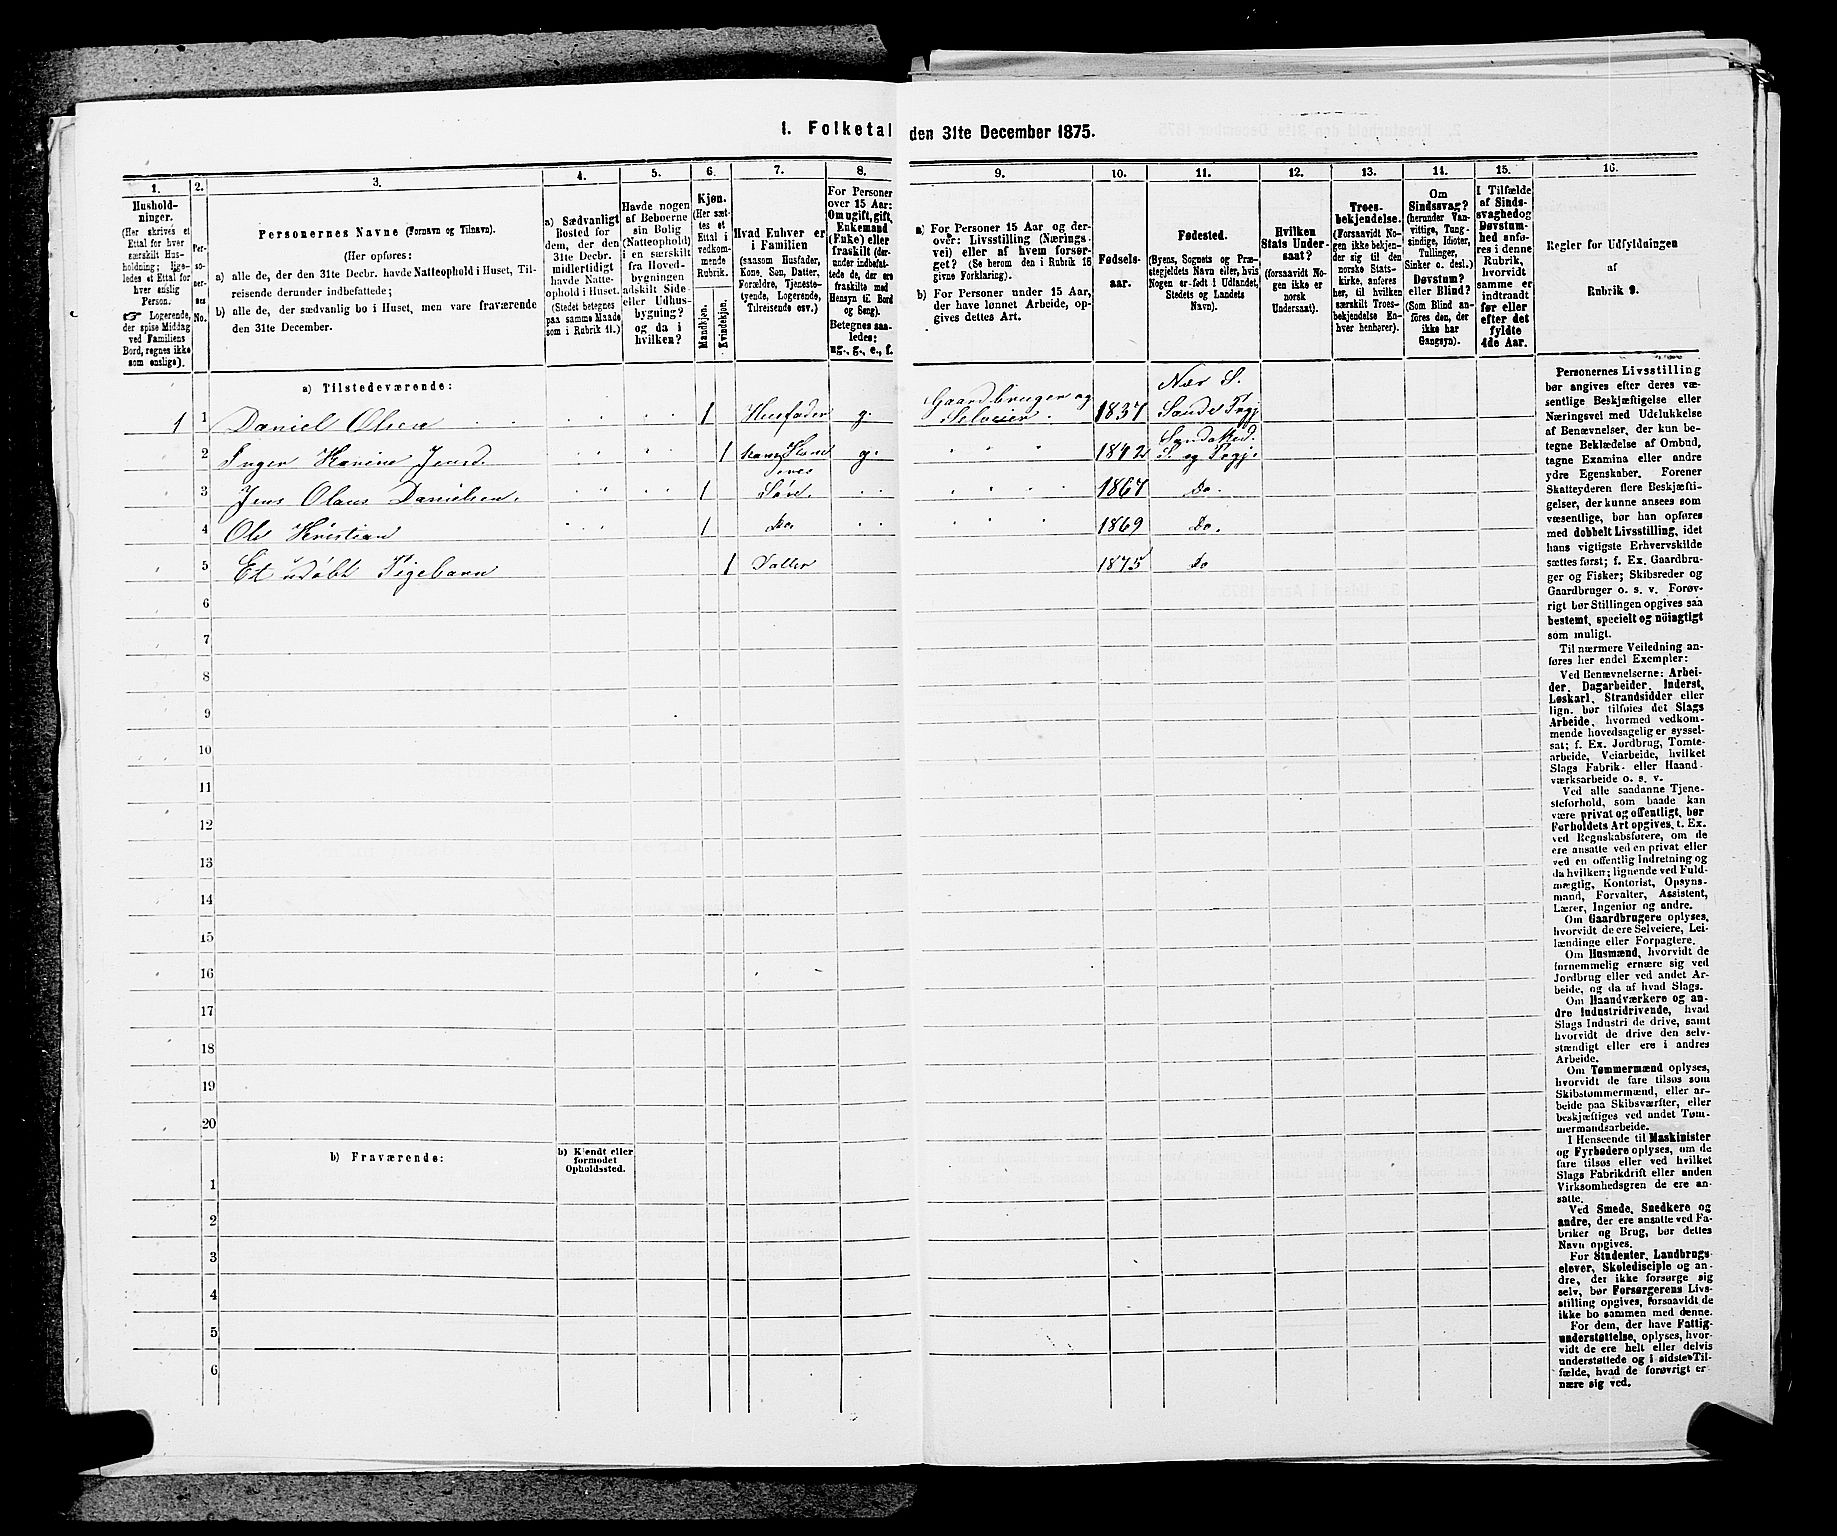 1. Folketal den 31te December 1875.
1.
Hushold-
ninger.
(Her skrives et
Ettal for hver
særskilt Hus-
holdning; lige-
ledes et Ettal for
hver enslig
Person.
☞ Logerende,
der spise Middag
ved Familiens
Bord, regnes ikke
som enslige).
2.
Per-
so-
ner-
nes
No.
3.
Personernes Navne (Fornavn og Tilnavn).
(Her opføres:
a) alle de, der den 31te Decbr. havde Natteophold i Huset, Til-
reisende derunder indbefattede;
b) alle de, der sædvanlig bo i Huset, men vare fraværende
den 31te December.
4.
a) Sædvanligt
Bosted for
dem, der den
31te Decbr.
midlertidigt
havde Natte-
ophold i Huset.
(Stedet betegnes
paa samme Maade
som i Rubrik 11.)
5.
Havde nogen
af Beboerne
sin Bolig
(Natteophold)
i en særskilt
fra Hoved-
bygningen
adskilt Side-
eller Udhus-
bygning?
og da i
hvilken?
6.
Kjøn.
(Her sæt-
tes et
Ettal i
vedkom-
mende
Rubrik.
Mandkjøn.
Kvindekjøn.
7.
Hvad Enhver er
i Familien
(saasom Husfader,
Kone, Søn, Datter,
Forældre, Tjeneste-
tyende, Logerende,
Tilreisende osv.)
8.
For Personer
over 15 Aar:
Om ugift, gift,
Enkemand
(Enke) eller
fraskilt (der-
under indbefat-
tede de, der ere
fraskilte med
Hensyn til Bord
og Seng).
Betegnes saa-
ledes:
ug., g., e., f.
9.
a) For Personer 15 Aar og der-
over: Livsstilling (Nærings-
vei) eller af hvem forsør-
get? (Se herom den i Rubrik 16
givne Forklaring).
b) For Personer under 15 Aar,
der have lønnet Arbeide, op-
gives dettes Art.
10.
Fødsels-
aar.
11.
Fødested.
(Byens, Sognets og Præ-
stegjeldets Navn eller, hvis
Nogen er født i Udlandet,
Stedets og Landets
Navn).
12.
Hvilken
Stats Under-
saat?
(forsaavidt No-
gen ikke er
norsk
Undersaat).
13.
Troes-
bekjendelse.
(Forsaavidt No-
gen ikke bekjen-
der sig til den
norske Stats-
kirke, anføres
her, til hvilken
særskilt Troes-
bekjendelse En-
hver henhører).
14.
Om
Sindssvag?
(herunder Van-
vittige, Tung-
sindige, Idioter,
Tullinger,
Sinker o. desl.)
Døvstum?
eller Blind?
(Som Blind an-
føres den, der
ikke har
Gangsyn).
15.
I Tilfælde
af Sinds-
svaghed og
Døvstum-
hed anfø-
res i denne
Rubrik,
hvorvidt
samme er
indtraadt
før eller
efter det
fyldte
4de Aar.
16.
Regler for Udfyldningen
af
Rubrik 9.
a) Tilstedeværende:
1 1 Daniel Olsen 1 Husfader g. Gaardbruger og Selveier. 1837 Nær S. Sande Prgj
2 Inger Karine Jensd. 1 g. 1842 S. og Prgj.
3 Jens Olaus Danielsen. 1 Søn. 1867 Do.
4 Ole Kristian 1 Do. 1869 Do.
5 Et udøbt Pigebarn 1 Datter 1875 Do
6
7
8
9
10
11
12
13
14
15
16
17
18
19
20
b) Fraværende:
b) Kjendt eller
formodet
Opholdssted.
1
2
3
4
5
6
Personernes Livsstilling
bør angives efter deres væ-
sentlige Beskjæftigelse eller
Næringsvei med Udelukkelse
af Benævnelser, der kun be-
tegne Beklædelse af Ombud,
tagne Examina eller andre
ydre Egenskaber. Forener
Skatteyderen flere Beskjæfti-
gelser, der kunne ansees som
væsentlige, bør han opføres
med dobbelt Livsstilling, idet
hans vigtigste Erhvervskilde
sættes først; f. Ex. Gaardbru-
ger og Fisker; Skibsreder og
Gaardbruger o. s. v. Forøv-
rigt bør Stillingen opgives saa
bestemt, specielt og nöiagtigt
som muligt.
Til nærmere Veiledning an-
føres her endel Exempler:
Ved Benævnelserne: Arbei-
der, Dagarbeider, Inderst,
Løskarl, Strandsidder eller
lign. bør tilføies det Slags
Arbeide, hvormed vedkom-
mende hovedsagelig er syssel-
sat; f. Ex. Jordbrug, Tomte-
arbeide, Veiarbeide, hvilket
Slags Fabrik- eller Haand-
værksarbeide o. s. v.
Ved alle saadanne Tjene-
steforhold, som baade kan
være privat og offentligt, bør
Forholdets Art opgives, t. Ex.
ved Regnskabsførere, om de
ere ansatte ved en privat eller
ved en offentlig Indretning og
da hvilken; lignende ved Fuld-
mægtig, Kontorist, Opsyns-
mand, Forvalter, Assistent,
Lærer, Ingeniør og andre.
Om Gaardbrugere oplyses,
hvorvidt de ere Selveiere, Lei-
lændinge eller Forpagtere.
Om Husmænd, hvorvidt de
fornemmelig ernære sig ved
Jordbrug eller ved andet Ar-
beide, og da af hvad Slags.
Om Haandværkere og an-
dre Industridrivende, hvad
Slags Industri de drive, samt
hvorvidt de drive den selv-
stændigt eller ere i andres
Arbeide.
Om Tømmermænd oplyses,
hvorvidt de fare tilsøs som
Skibstømmermænd, eller ar-
beide paa Skibsværfter, eller
beskjæftiges ved andet Tøm-
mermandsarbeide.
I Henseende til Maskinister
og Fyrbødere oplyses, om de
fare tilsøs eller ved hvilket
Slags Fabrikdrift eller anden
Virksomhedsgren de ere an-
satte.
Ved Smede, Snedkere og
andre, der ere ansatte ved Fa-
briker og Brug, bør dettes
Navn opgives.
For Studenter, Landbrugs-
elever, Skoledisciple og an-
dre, der ikke forsørge sig
selv, bør Forsørgerens Livs-
stilling opgives, forsaavidt de
ikke bo sammen med denne.
For dem, der have Fattig-
understøttelse, oplyses, hvor-
vidt de ere helt eller delvis
understøttede og i sidste Til-
fælde, hvad de forøvrigt er-
nære sig ved.